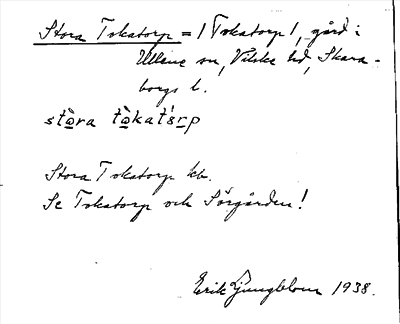 Stora Tokatorp = / Tokatorp /, gård i
Ullene sn, Vilske hd, Skara-
borgs l.
stòra tòkatʹsrp
Stora Tokatorp kb.
Se Tokatorp och Sörgården!
Erik Ljungblom 1938.